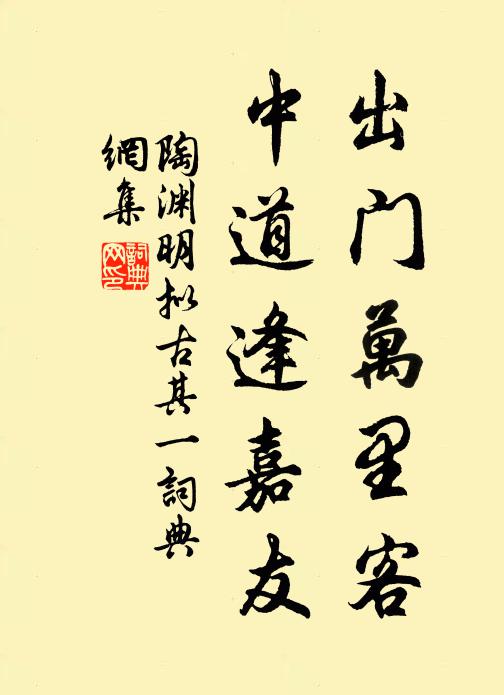 出门萬里客
中道逢嘉友
陶渊明拟古其一詞典
網集
詞典
网印